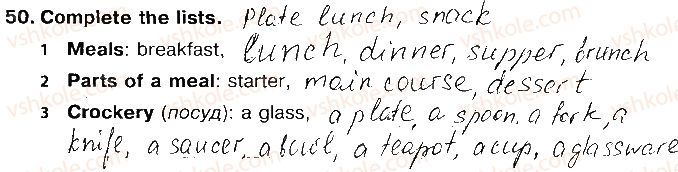 50. Complete the lists. Plate lunch, snack
1 Meals: breakfast, lunch, dinner, supper, brunch
2 Parts of a meal: starter, main course, dessert
3 Crockery (посуд): a glass, a plate, a spoon, a fork, a
knife, a saucer, a bowl, a teapot, a cup, a glassware